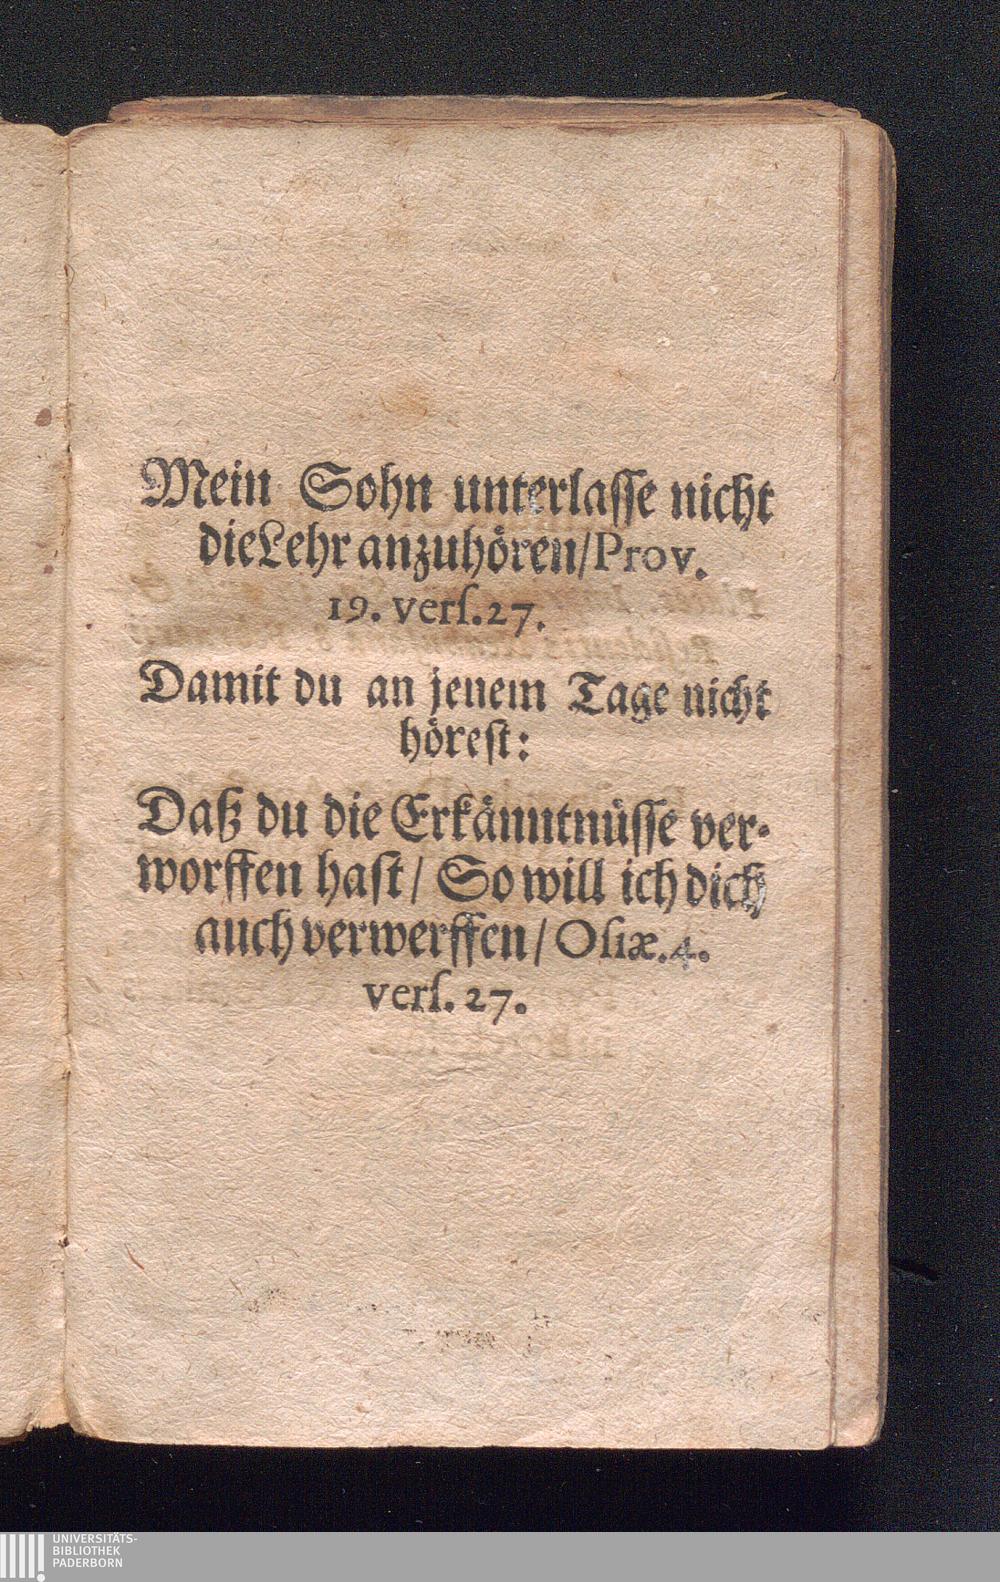 Mein Sohn unterlasse nicht
die Lehr anzuhören/ Prov.
19. verſ. 27.
Damit du an jenem Tage nicht
höreſt:
Daß du die Erkänntnüſſe ver-
worffen haſt/ So will ich dich
auch verwerffen/ Oſiæ. 4.
verſ. 27.
UNIVERSITÄTS-
BIBLIOTHEK
PADERBORN